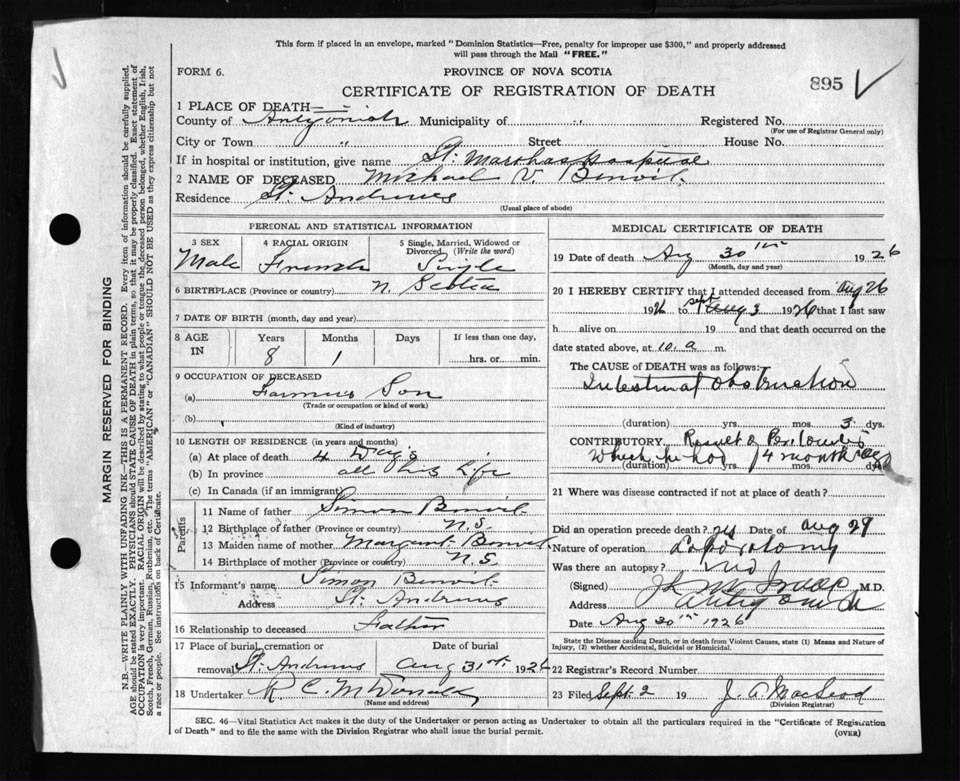 This form if placed in an envelope, marked "Dominion Statistics—Free, penalty for improper use $300," and properly addressed
will pass through the Mail "FREE."
FORM 6.
PROVINCE OF NOVA SCOTIA
895
CERTIFICATE OF REGISTRATION OF DEATH
1 PLACE OF DEATH—
County of Antigonish Municipality of " Registered No.
(For use of Registrar General only)
City or Town " Street House No.
If in hospital or institution, give name St. Marthas Hospital
2 NAME OF DECEASED Michael V. Benoit
Residence St. Andrews
(Usual place of abode)
PERSONAL AND STATISTICAL INFORMATION
3 SEX Male
4 RACIAL ORIGIN French
5 Single, Married, Widowed or Divorced (Write the word) Single
6 BIRTHPLACE (Province or country) N. Scotia
7 DATE OF BIRTH (month, day and year)
8 AGE IN Years 8 Months 1 Days If less than one day, hrs. or min.
9 OCCUPATION OF DECEASED
(a) Farmers Son
(Trade or occupation or kind of work)
(b)
(Kind of industry)
10 LENGTH OF RESIDENCE (in years and months)
(a) At place of death 4 Days
(b) In province all his life
(c) In Canada (if an immigrant)
Parents
11 Name of father Simon Benoit
12 Birthplace of father (Province or country) N.S.
13 Maiden name of mother Margaret Benoit
14 Birthplace of mother (Province or country) N.S.
15 Informant's name Simon Benoit
Address St. Andrews
16 Relationship to deceased Father
17 Place of burial, cremation or removal St. Andrews Date of burial Aug 31st 1926
18 Undertaker R C. McDonald
(Name and address)
MEDICAL CERTIFICATE OF DEATH
19 Date of death Aug 30th 1926
(Month, day and year)
20 I HEREBY CERTIFY that I attended deceased from Aug 26
1926 to 1926 that I last saw
h. alive on 19 and that death occurred on
date stated above, at 10. a m.
The CAUSE OF DEATH was as follows:
Intestinal obstruction
(duration) yrs. mos. 3 dys.
CONTRIBUTORY Result of Peritonitis
which he had 4 months ago
(duration) yrs. mos. dys.
21 Where was disease contracted if not at place of death?
Did an operation precede death? yes Date of Aug 29
Nature of operation Laporotomy
Was there an autopsy? No
(Signed) M.D.
Address Antigonish
Date Aug 30th 1926
State the Disease causing Death, or in death from Violent Causes, state (1) Means and Nature of
Injury, (2) whether Accidental, Suicidal or Homicidal.
22 Registrar's Record Number
23 Filed Sept. 2 19 J. A. MacLeod
(Division Registrar)
SEC. 46—Vital Statistics Act makes it the duty of the Undertaker or person acting as Undertaker to obtain all the particulars required in the "Certificate of Registration
of Death" and to file the same with the Division Registrar who shall issue the burial permit.
(OVER)
MARGIN RESERVED FOR BINDING
N.B.—WRITE PLAINLY WITH UNFADING INK—THIS IS A PERMANENT RECORD. Every item of information should be carefully supplied.
AGE should be stated EXACTLY. PHYSICIANS should STATE CAUSE OF DEATH in plain terms, so that it may be properly classified. Exact statement of
OCCUPATION is very important. RACIAL ORIGIN will be described by stating to what people or tongue the deceased person belonged, whether English, Irish,
Scotch, French, German, Russian, Ruthenian, etc. The terms "AMERICAN" or "CANADIAN" SHOULD NOT BE USED as they express citizenship but not
a race or people. See instructions on back of Certificate.